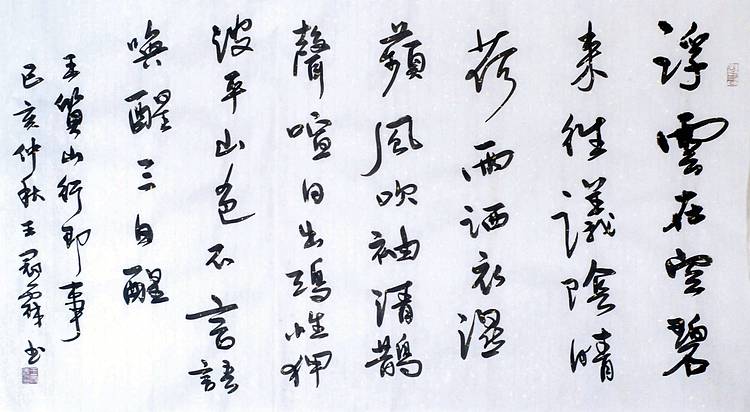 浮雲在空碧
来往議陰晴
荷雨洒衣濕
蘋風吹袖清鵲
聲喧日出鷗性狎
波平山色不言語
喚醒三日醒
王質山行即事
己亥仲秋王霖书